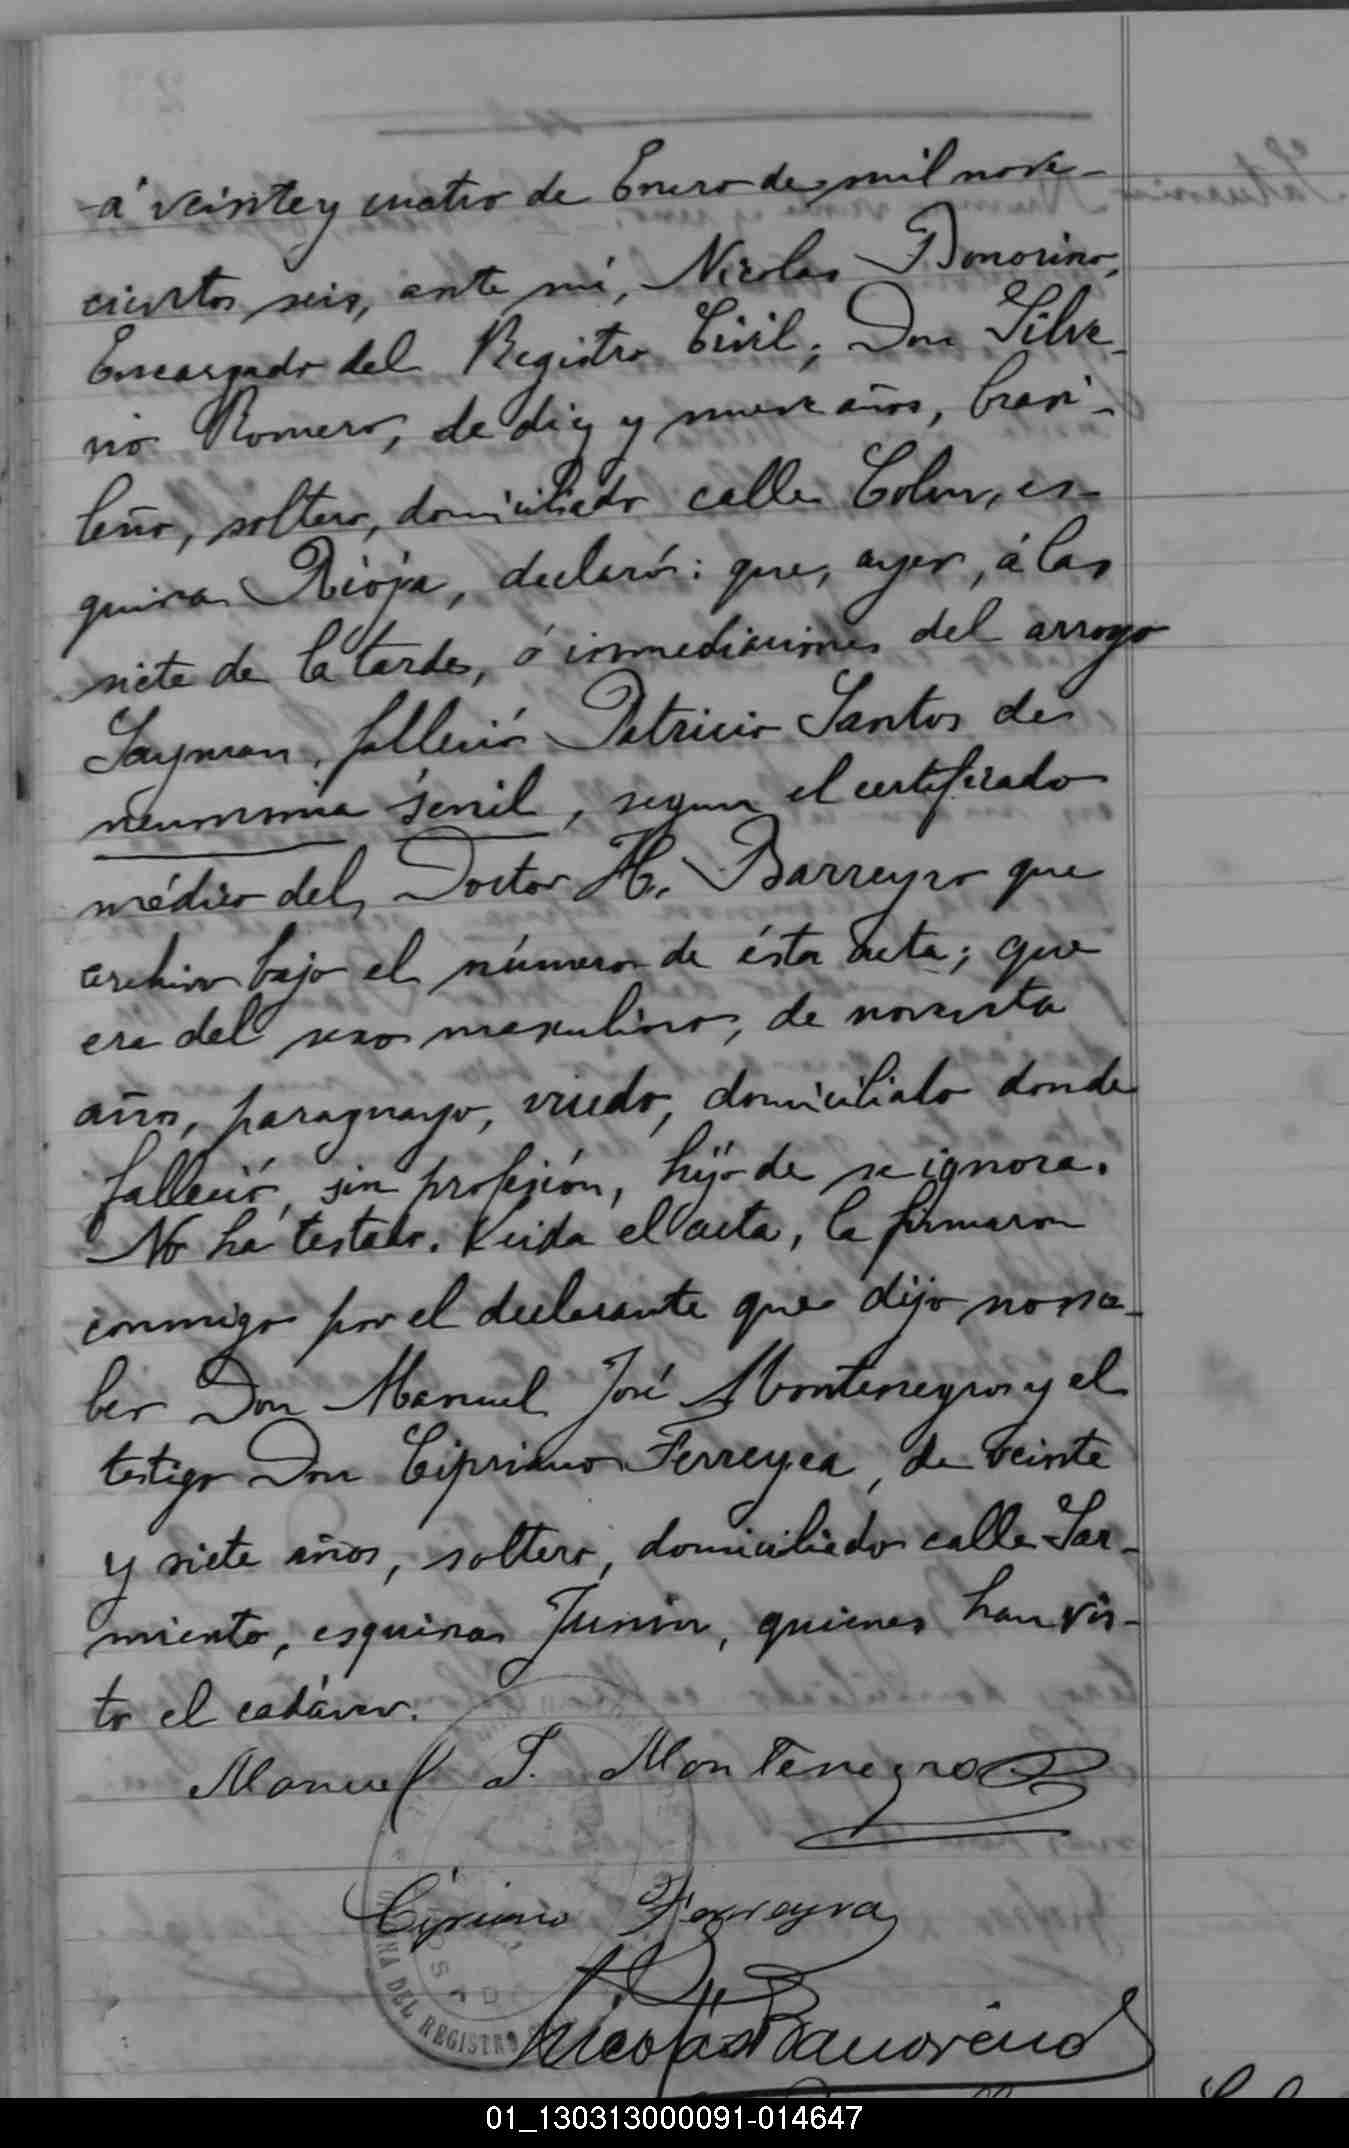 á veinte y cuatro de Enero de mil nove-
cientos seis, ante mí, Nicolas Bonorino,
Encargado del Registro Civil; Don Silve-
rio Romero, de diez y nueve años, brasi-
leño, soltero, domiciliado calle Colon, es-
quina Rioja, declaró: que, ayer, á las
siete de la tarde, ó inmediaciones del arroyo
Sayman, falleció Patricio Santos de
neumonia senil, segun el certificado
médico del Doctor H. Barreyro que
archivo bajo el número de ésta acta; que
era del sexo masculino, de noventa
años, paraguayo, viudo, domiciliado donde
falleció, sin profesión, hijo de se ignora.
No ha testado. Leida el acta, la firmaron
conmigo por el declarante que dijo no sa-
ber Don Manuel José Montenegro y el
testigo Don Cipriano Ferreyra, de veinte
y siete años, soltero, domiciliado calle Sar-
miento, esquina Junin, quienes han vis-
to el cadáver.
Manuel J. Montenegro
Cipriano Ferreyra
Nicolas Bonorino
DEL REGISTRO
01_130313000091-014647